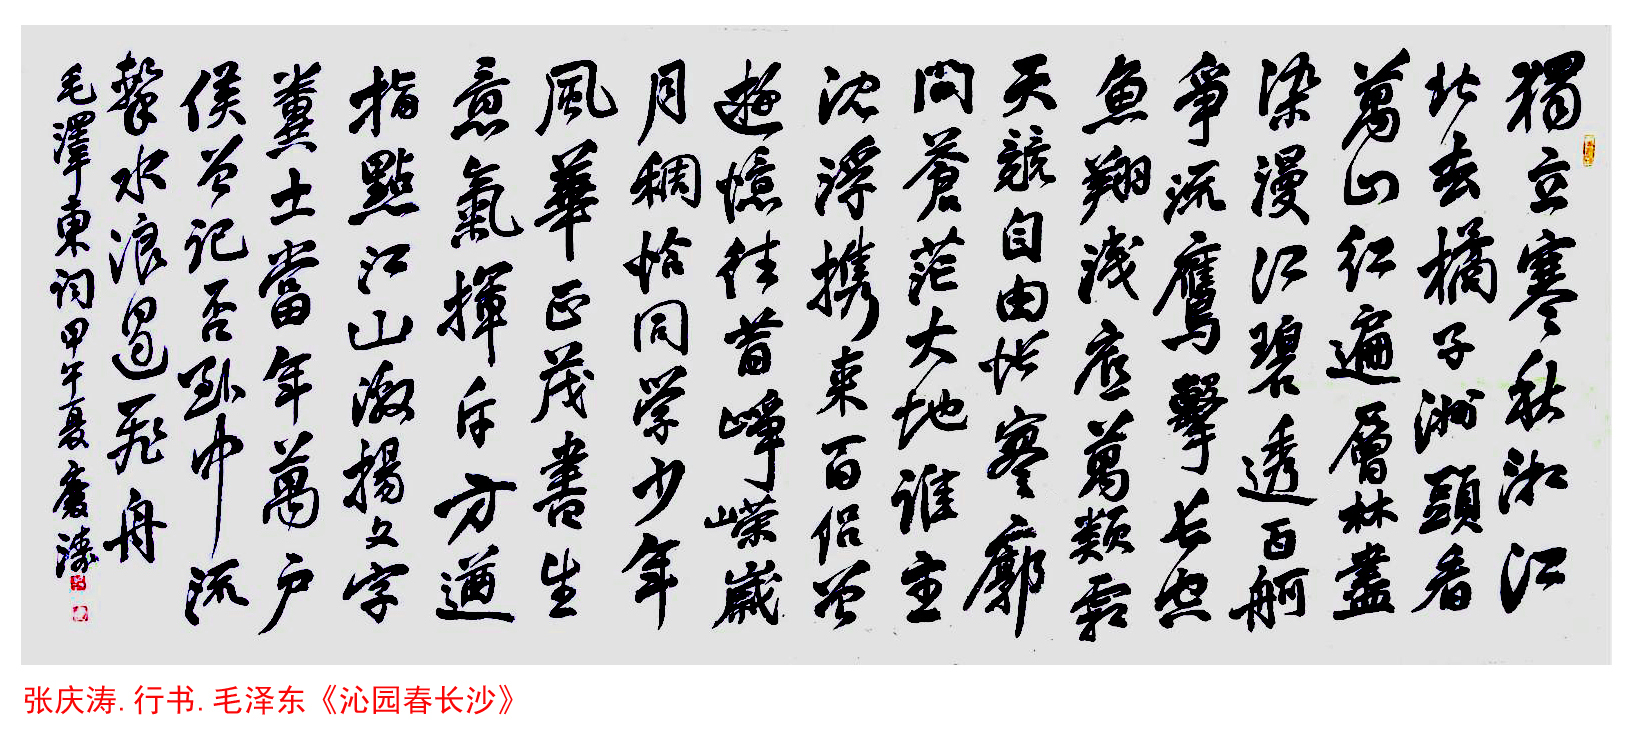 獨立寒秋湘江
北去橘子洲頭看
萬山红遍層林盡
染漫江碧透百舸
爭流鷹擊長空
魚翔淺底萬類霜
天競自由悵寥廓
問蒼茫大地誰主
沈浮携來百侣曾
遊憶往昔崢嶸歲
月稠恰同學少年
風華正茂書生
意氣揮斥方遒
指點江山激揚文字
糞土當年萬户
侯曾記否到中流
擊水浪遏飛舟
毛澤東詞甲午夏慶濤
张庆涛.行书.毛泽东《沁园春长沙》